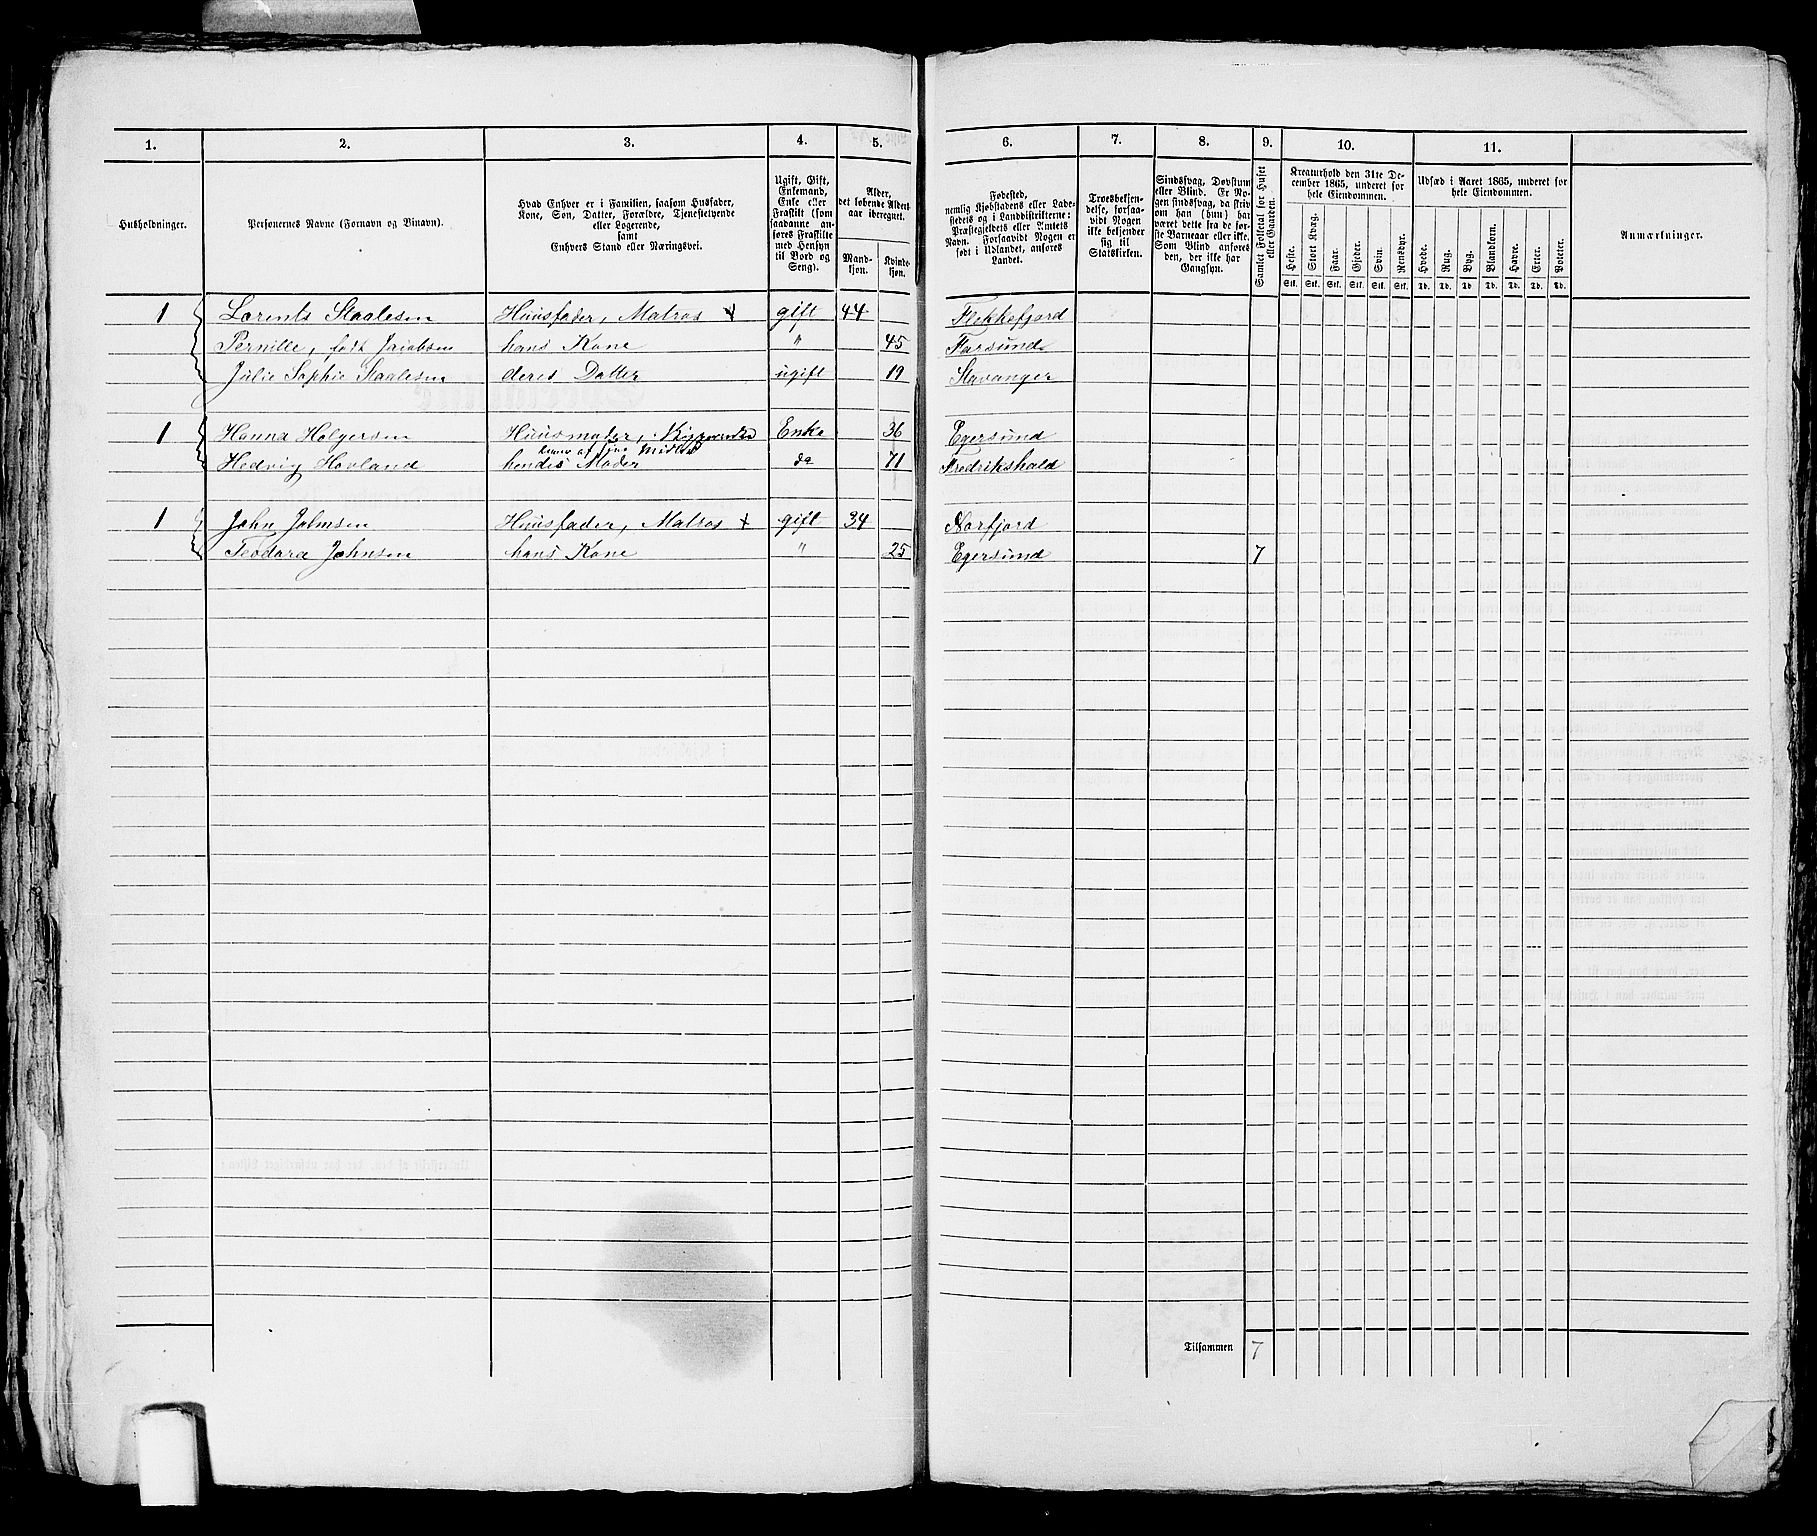 1. 2. 3. 4. 5. 6. 7. 8. 9. 10. 11.
Husholdninger.
Personernes Navne (Fornavn og Tilnavn).
Hvad Enhver er i Familien, saasom Husfader,
Kone, Søn, Datter, Forældre, Tjenestetyende
eller Logerende,
samt
Enhvers Stand eller Næringsvei.
Ugift, Gift,
Enkemand,
Enke eller
Fraskilt (som
saadanne an-
føres Fraskilte
med Hensyn
til Bord og
Seng).
Alder,
det løbende Aldert-
aar iberegnet.
Mand-
kjøn.
Kvinde-
kjøn.
Fødested,
nemlig Kjøbstadens eller Lade-
stedets og i Landdistrikterne:
Præstegjeldets eller Amtets
Navn. Forsaavidt Nogen er
født i Udlandet, anføres
Landet.
Troesbekjen-
delse, forsaa-
vidt Nogen
ikke bekjender
sig til
Statskirken.
Sindssvag, Døvstum
eller Blind. Er No-
gen sindssvag, da skriv
om han (hun) har
været dette fra de før-
ste Barneaar eller ikke.
Som Blind anføres
den, der ikke har
Gangsyn.
Samlet Folketal for Huset
eller Gaarden.
Kreaturhold den 31te De-
cember 1865, underet for
hele Eiendommen.
Heste. Stort Kvæg. Faar. Gjeder. Svin. Rensdyr.
Stk. Stk. Stk. Stk. Stk. Stk.
Udsæd i Aaret 1865, underet for
hele Eiendommen.
Hvede. Rug. Byg. Blandkorn. Havre. Erter. Poteter.
Td. Td. Td. Td. Td. Td. Td.
Anmærkninger.
1 Lorents Staalesen Huusfader, Matros + gift 44 Flekkefjord
Pernille, født Jacobsen hans Kone " 45 Farsund
Julie Sophie Staalesen deres Datter ugift 19 Stavanger
1 Hanna Holgersen Huusmoder, Enke 36 Egersund
lever af sine Midler
Hedvig Hovland hendes Moder do 71 Fredrikshald
1 John Johnsen Huusfader, Matros + gift 34 Norfjord
Teodora Johnsen hans Kone " 25 Egersund 7
Tilsammen 7